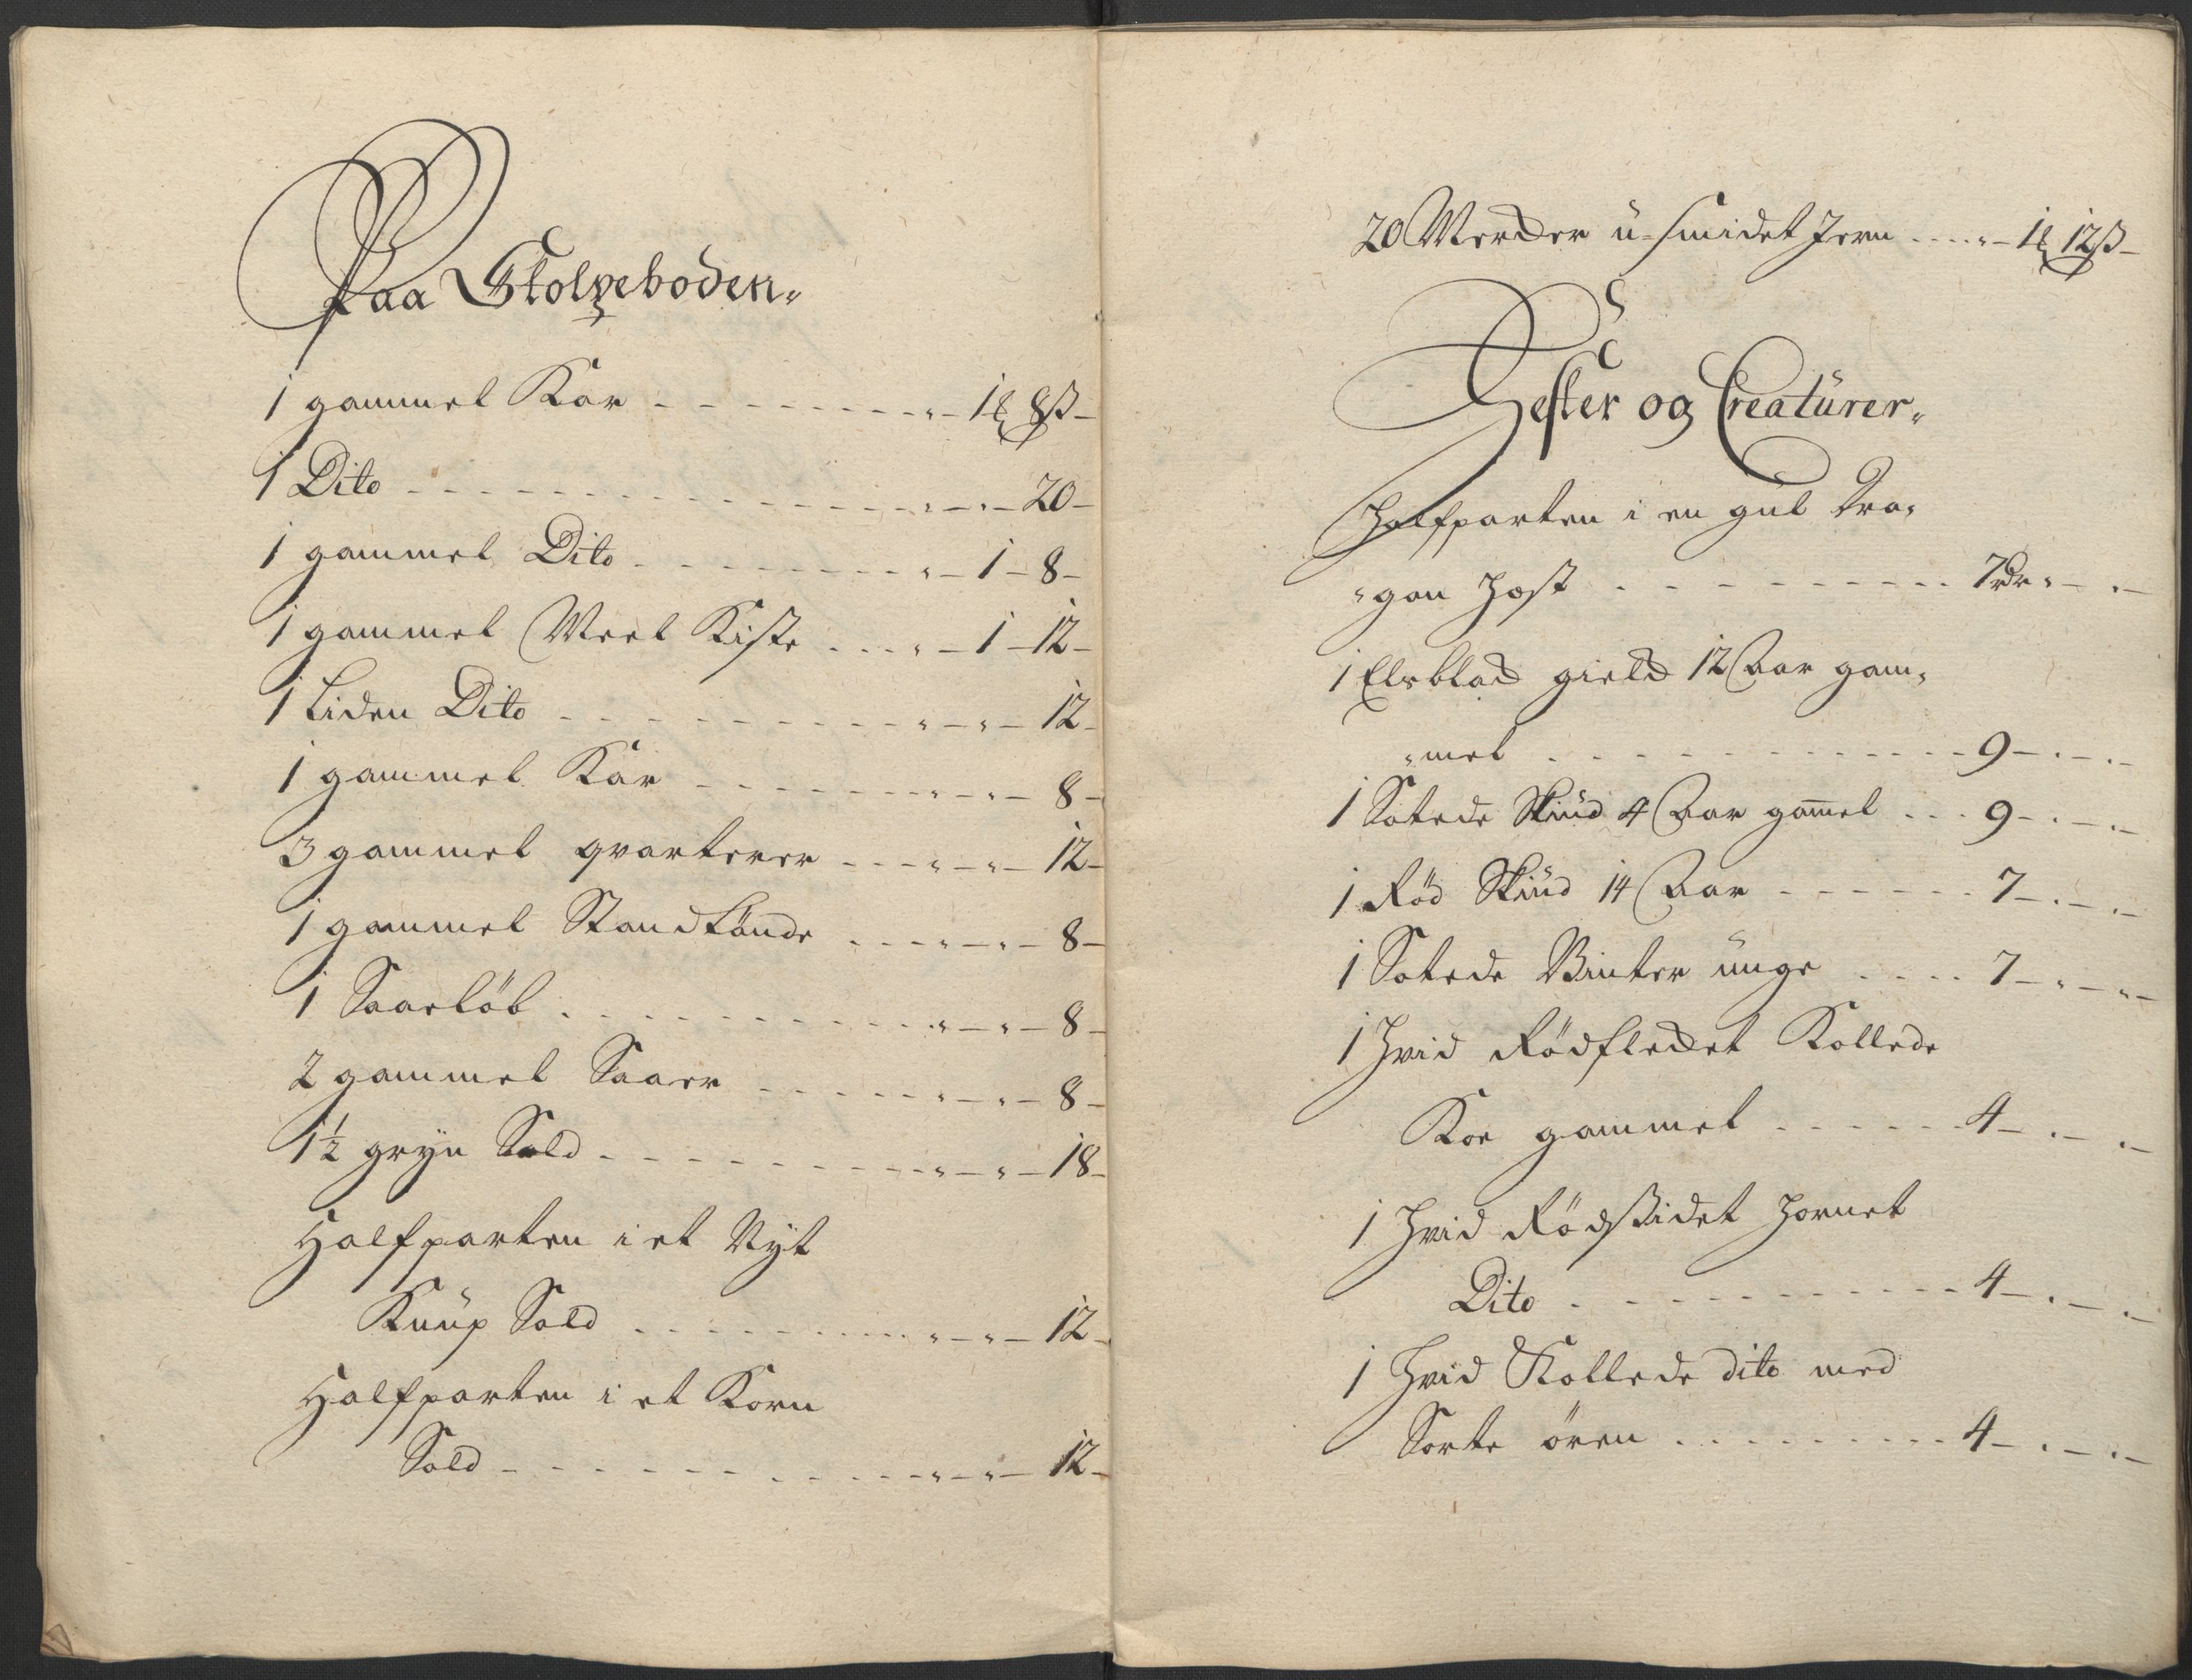 Paa Stolpeboden„
1 gammel Kar - - - - - - - „ - 1 ℔ 8 ß -
1 Dito - - - - - - - - - - „ - „ - 20 -
1 gammel Dito - - - - - - - „ - 1 - 8 -
1 gammel Meel Kiste - - - „ - 1 - 12 -
1 Liden Dito - - - - - - - „ - „ - 12 -
1 gammel Kar - - - - - - „ - „ - 8 -
3 gammel qvarterer - - - „ - „ - 12 -
1 gammel Standtönde - - - „ - „ - 8 -
1 Saaeløb - - - - - - - „ - „ - 8 -
2 gammel Saaer - - - - - „ - „ - 8 -
1½ gryn Sold - - - - - - - „ - „ - 18 -
Halfparten i et Nyt
Knüp Sold - - - - - - - „ - „ - 12 -
Halfparten i et Korn
Sold - - - - - - - - „ - „ - 12 -
20 Mercker ü-smidet Jern - - - „ - 1 ℔ 12 ß -
Hester og Creatürer„
Halfparten i en gül Dra„
„gon Hest - - - - - - - - 7 rdr „ - „ -
1 Elsblack gield 12 Aar gam„
„mel - - - - - - - - - - 9 - „ - „ -
1 Sotede Skiüd 4 Aar gam̄el - - - 9 - „ - „ -
1 Rød Skiüd 14 Aar - - - - - 7 - „ - „ -
1 Sotede Vinter ünge - - - - 7 - „ - „ -
1 Hvid Rødflecket Kollede
Koe gammel - - - - - - 4 - „ - „ -
1 Hvid Rødsidet Hornet
Dito - - - - - - - - - - 4 - „ - „ -
1 Hvid Kollede dito med
Sorte ören - - - - - - - - 4 - „ - „ -